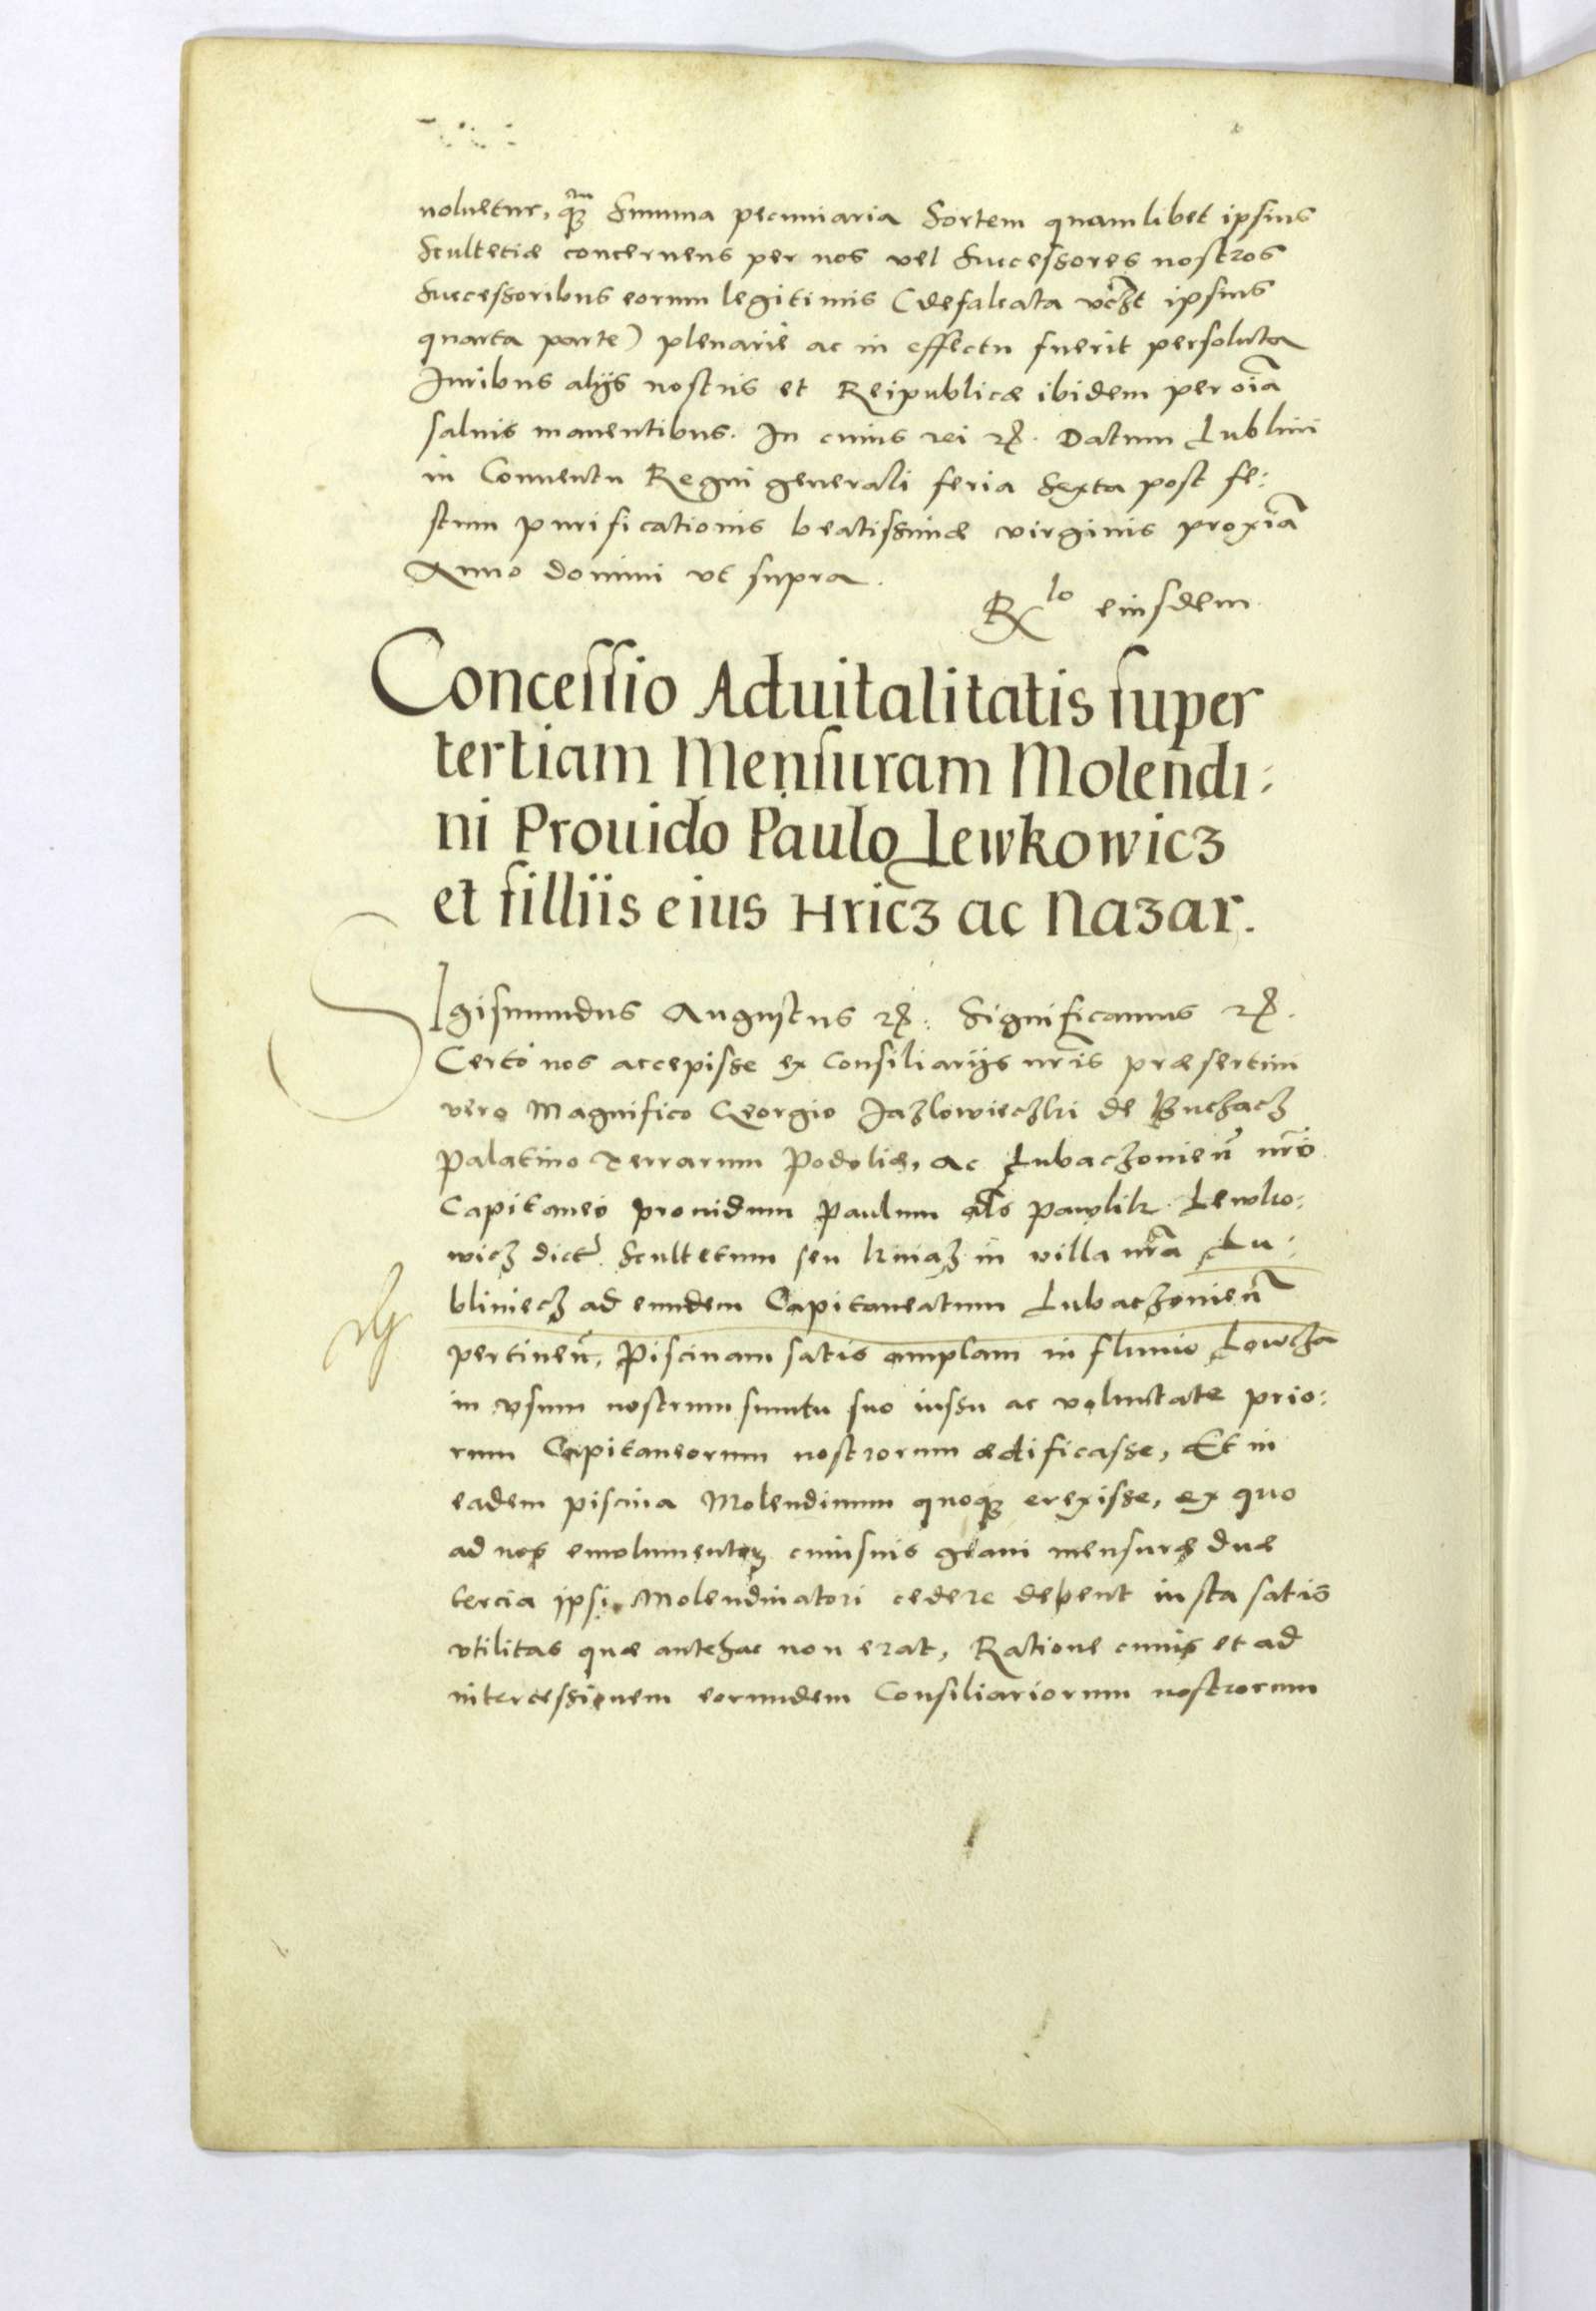 uoluetur, quamq; Summa pecuniaria Sortem quamlibet ipsius
Scultetiæ concernens per nos vel Successores nostros
Successoribus eorum legitimis (defalcata vczt ipsius
quarta parte) plenarie ac in effectu fuerit persoluta
Juribus alijs nostris et Reipublicæ ibidem per oia
saluis manentibus. In cuius rei etc. Datum Lublini
in Conuentu Regni generali feria Sexta post fe:
stum purificationis beatissimæ virginis proxia
Anno domini vt supra.
Rlo eiusdem
Concessio Aduitalitatis super
tertiam Mensuram Molendi:
ni Prouido Paulo Lewkowicz
et filliis eius Hricz ac Nazar.
Sigismundus Augustus etc: Significamus etc.
Certo nos accepisse ex Consiliarijs nris præsertim
vero Magnifico Georgio Jazlowieczki de Buchacz
Palatino terrarum Podoliæ, ac Lubaczonien nro
Capitaneo prouidum Paulum als Pawlik Lewko:
wicz dict Scultetum seu kniaz in villa nra Lu:
bliniecz ad eundem Capitaneatum Lubaczonien
pertinen, Piscinam satis amplam in fluuio Lowcza
in vsum nostrum sumtu suo iussu ac voluntate prio:
rum Capitaneorum nostrorum ædificasse, Et in
eadem piscina Molendinum quoq; erexisse, ex quo
ad nos emolumentum cuiusuis grani mensuræ duæ
tercia ipsi Molendinatori cedere debent iusta satis
vtilitas quæ antehac non erat, Ratione cuius et ad
intercessionem eorundem Consiliariorum nostrorum